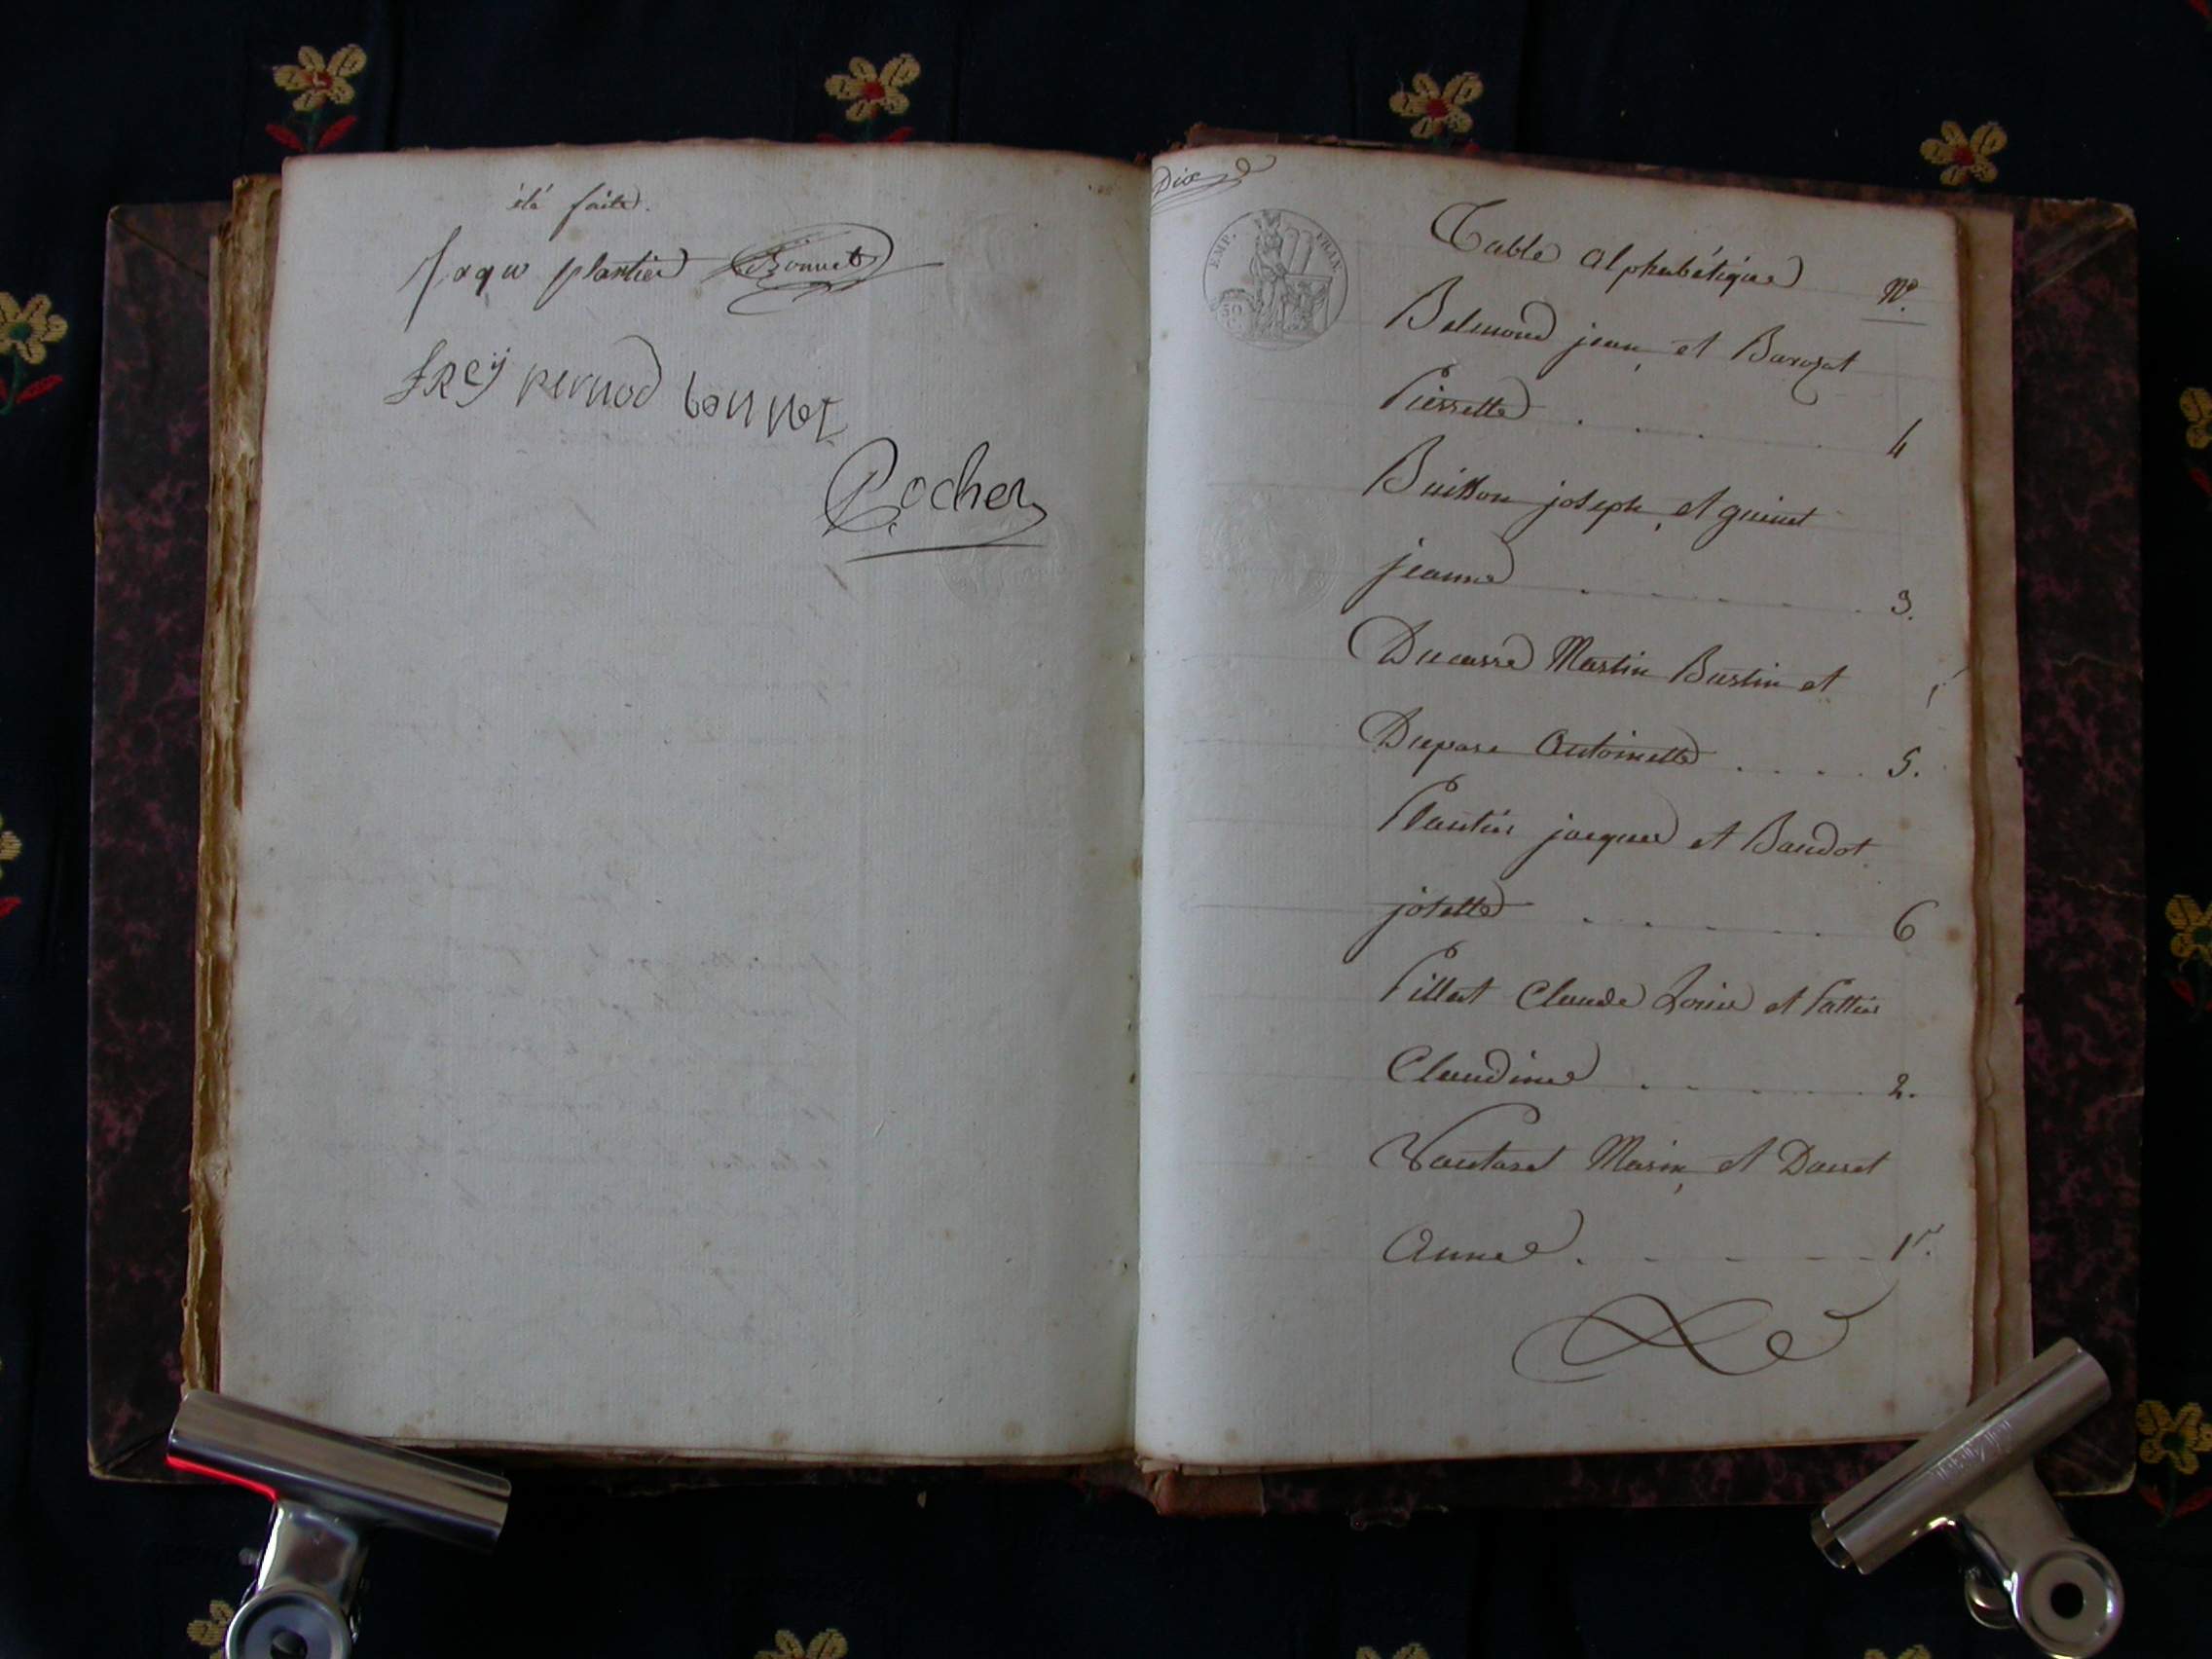 été faite.
Jaque plantier Bonnet
frey pernod bonnet
Rocher
Dix
EMP. FRAN.
50
C.
Table Alphabétique
No.
Belmond jean, et Barozat
Pierrette . . . . . 4
Buisson joseph, et guinet
jeanne . . . . . 3.
Ducarre Martin Bastin et
Dupare Antoinette . . . . 5.
Plantier jacques et Baudot
josette . . . . . 6
Pillet Claude Louis et Pattier
Claudine . . . . . 2.
Vautaret Marin, et Douret
Anne . . . . . 1er.